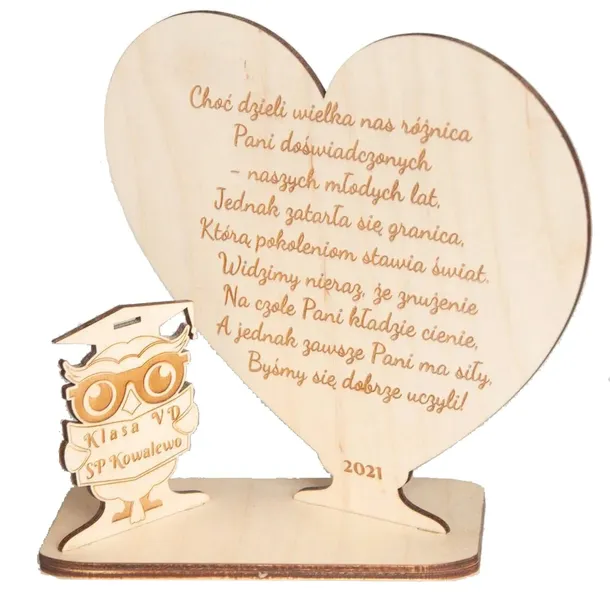 Choć dzieli wielka nas różnica
Pani doświadczonych
- naszych młodych lat,
Jednak zatarła się granica,
Którą pokoleniom stawia świat.
Widzimy nieraz, że znużenie
Na czole Pani kładzie cienie,
A jednak zawsze Pani ma siły,
Byśmy się dobrze uczyli!
2021
Klasa VD
SP Kowalewo